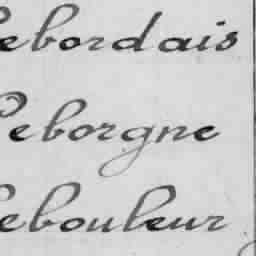 Lebordais
Leborgne
Lebouleur